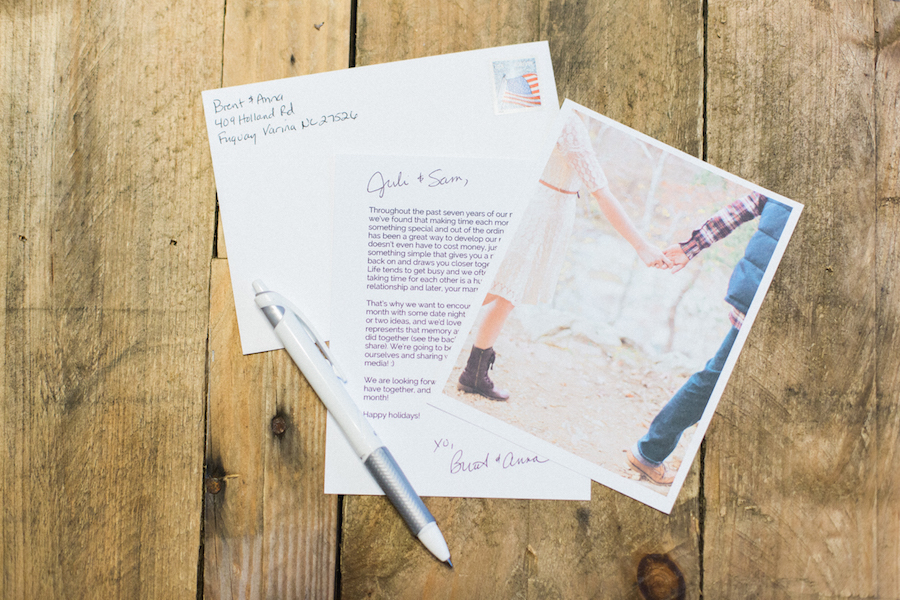 Brent & Anna
409 Holland Rd
Fuquay Varina NC 27526
Juli & Sam,
Throughout the past seven years of our
we've found that making time each
something special and out of the
has been a great way to develop our
doesn't even have to cost money,
something simple that gives you a
back on and draws you closer
Life tends to get busy and we
taking time for each other is a
relationship and later, your
That's why we want to
month with some date night
or two ideas, and we'd love
represents that memory
did together (see the
share). We're going to
ourselves and sharing
media! :)
We are looking
have together, and
month!
Happy holidays!
xo,
Brent & Anna